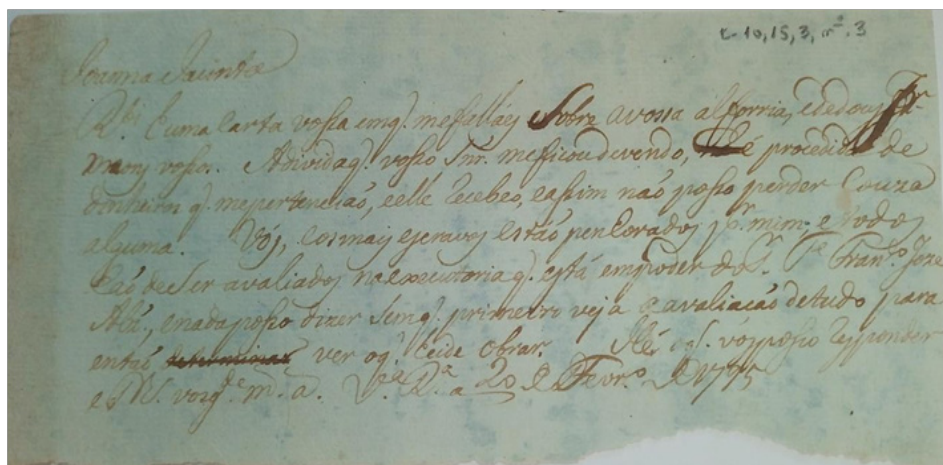 L-10,15,3, nº. 3
Joanna Jacinta
R.bi huma Carta vossa emq. mefallaes Sobre avossa alforria, ededous Ir-
maons vossos. Adividaq. vosso Snr. meficou devendo, hé procedida de
dinheiros q. mepertencião, eelle recebeo, eassim não posso perder Couza
alguma. Vós, eosmais escravos estão penhorados p.r mim, e todos
hão deser avaliados naexecutoria q. está empoder do S.r Fran.co Joze
enadaposso dizer Semq. primeiro veja a avaliacão detudo para
entaõ determinar ver oq. heide obrar. Hé oq. vósposso responder
e D.s vosg.de m.a. V.a R.a a 20 de Fevr.o de 1775